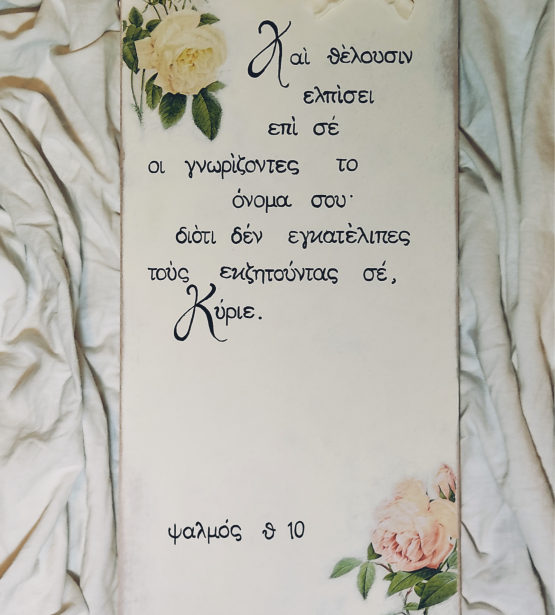 Καὶ θὲλουσιν
ελπὶσει
επὶ σέ
οι γνωρὶζοντες το
όνομα σου·
διὸτι δέν εγκατὲλιπες
τοὺς εκζητούντας σέ,
Κύριε.
ψαλμός θ 10